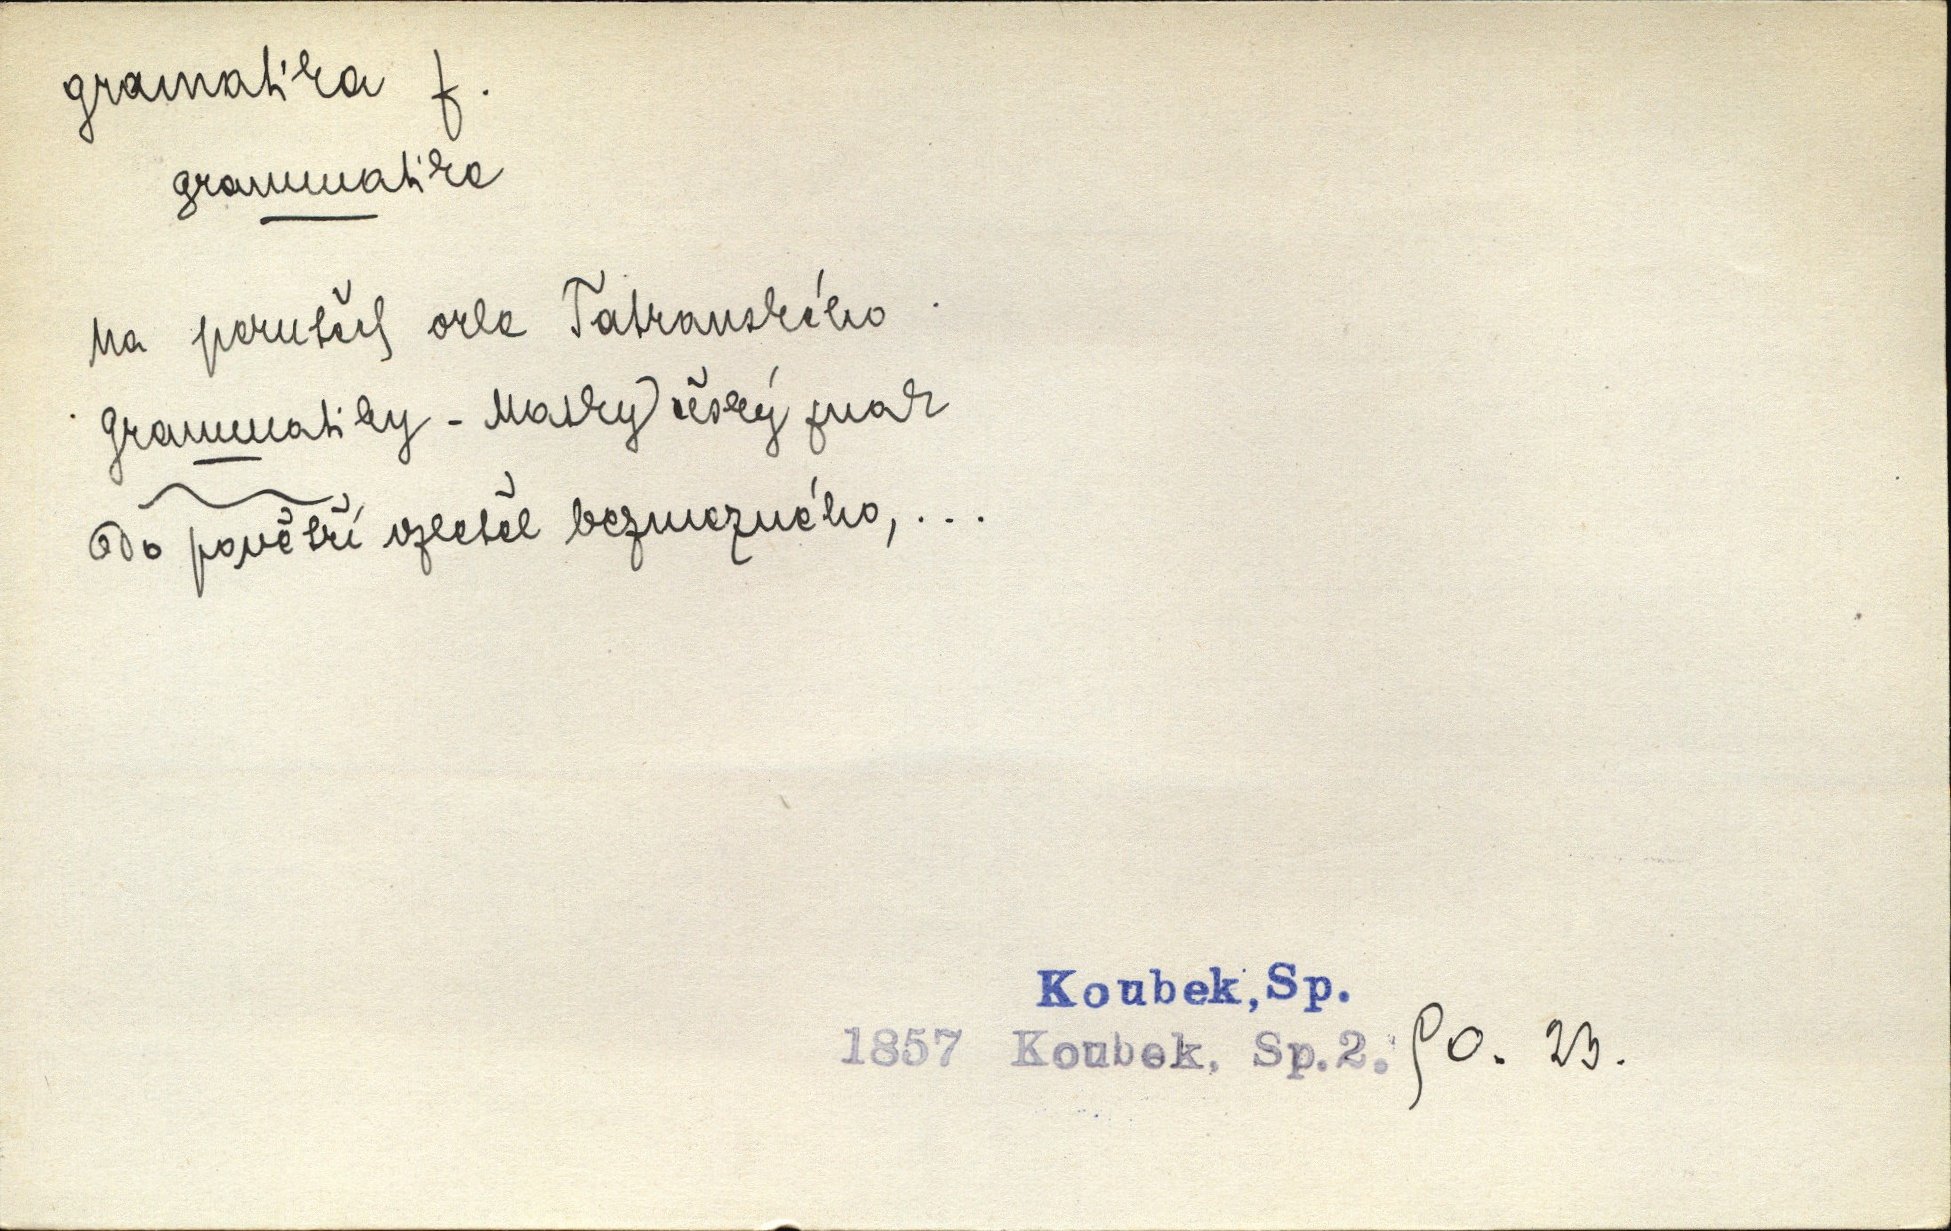 gramatika f.
grammatika
Na perutěch orla Tatranského
Grammatiky - Matky český znak
Do povětří vzletěl bezmezného, ...
Koubek, Sp.
1857 Koubek, Sp.2. 90. 23.